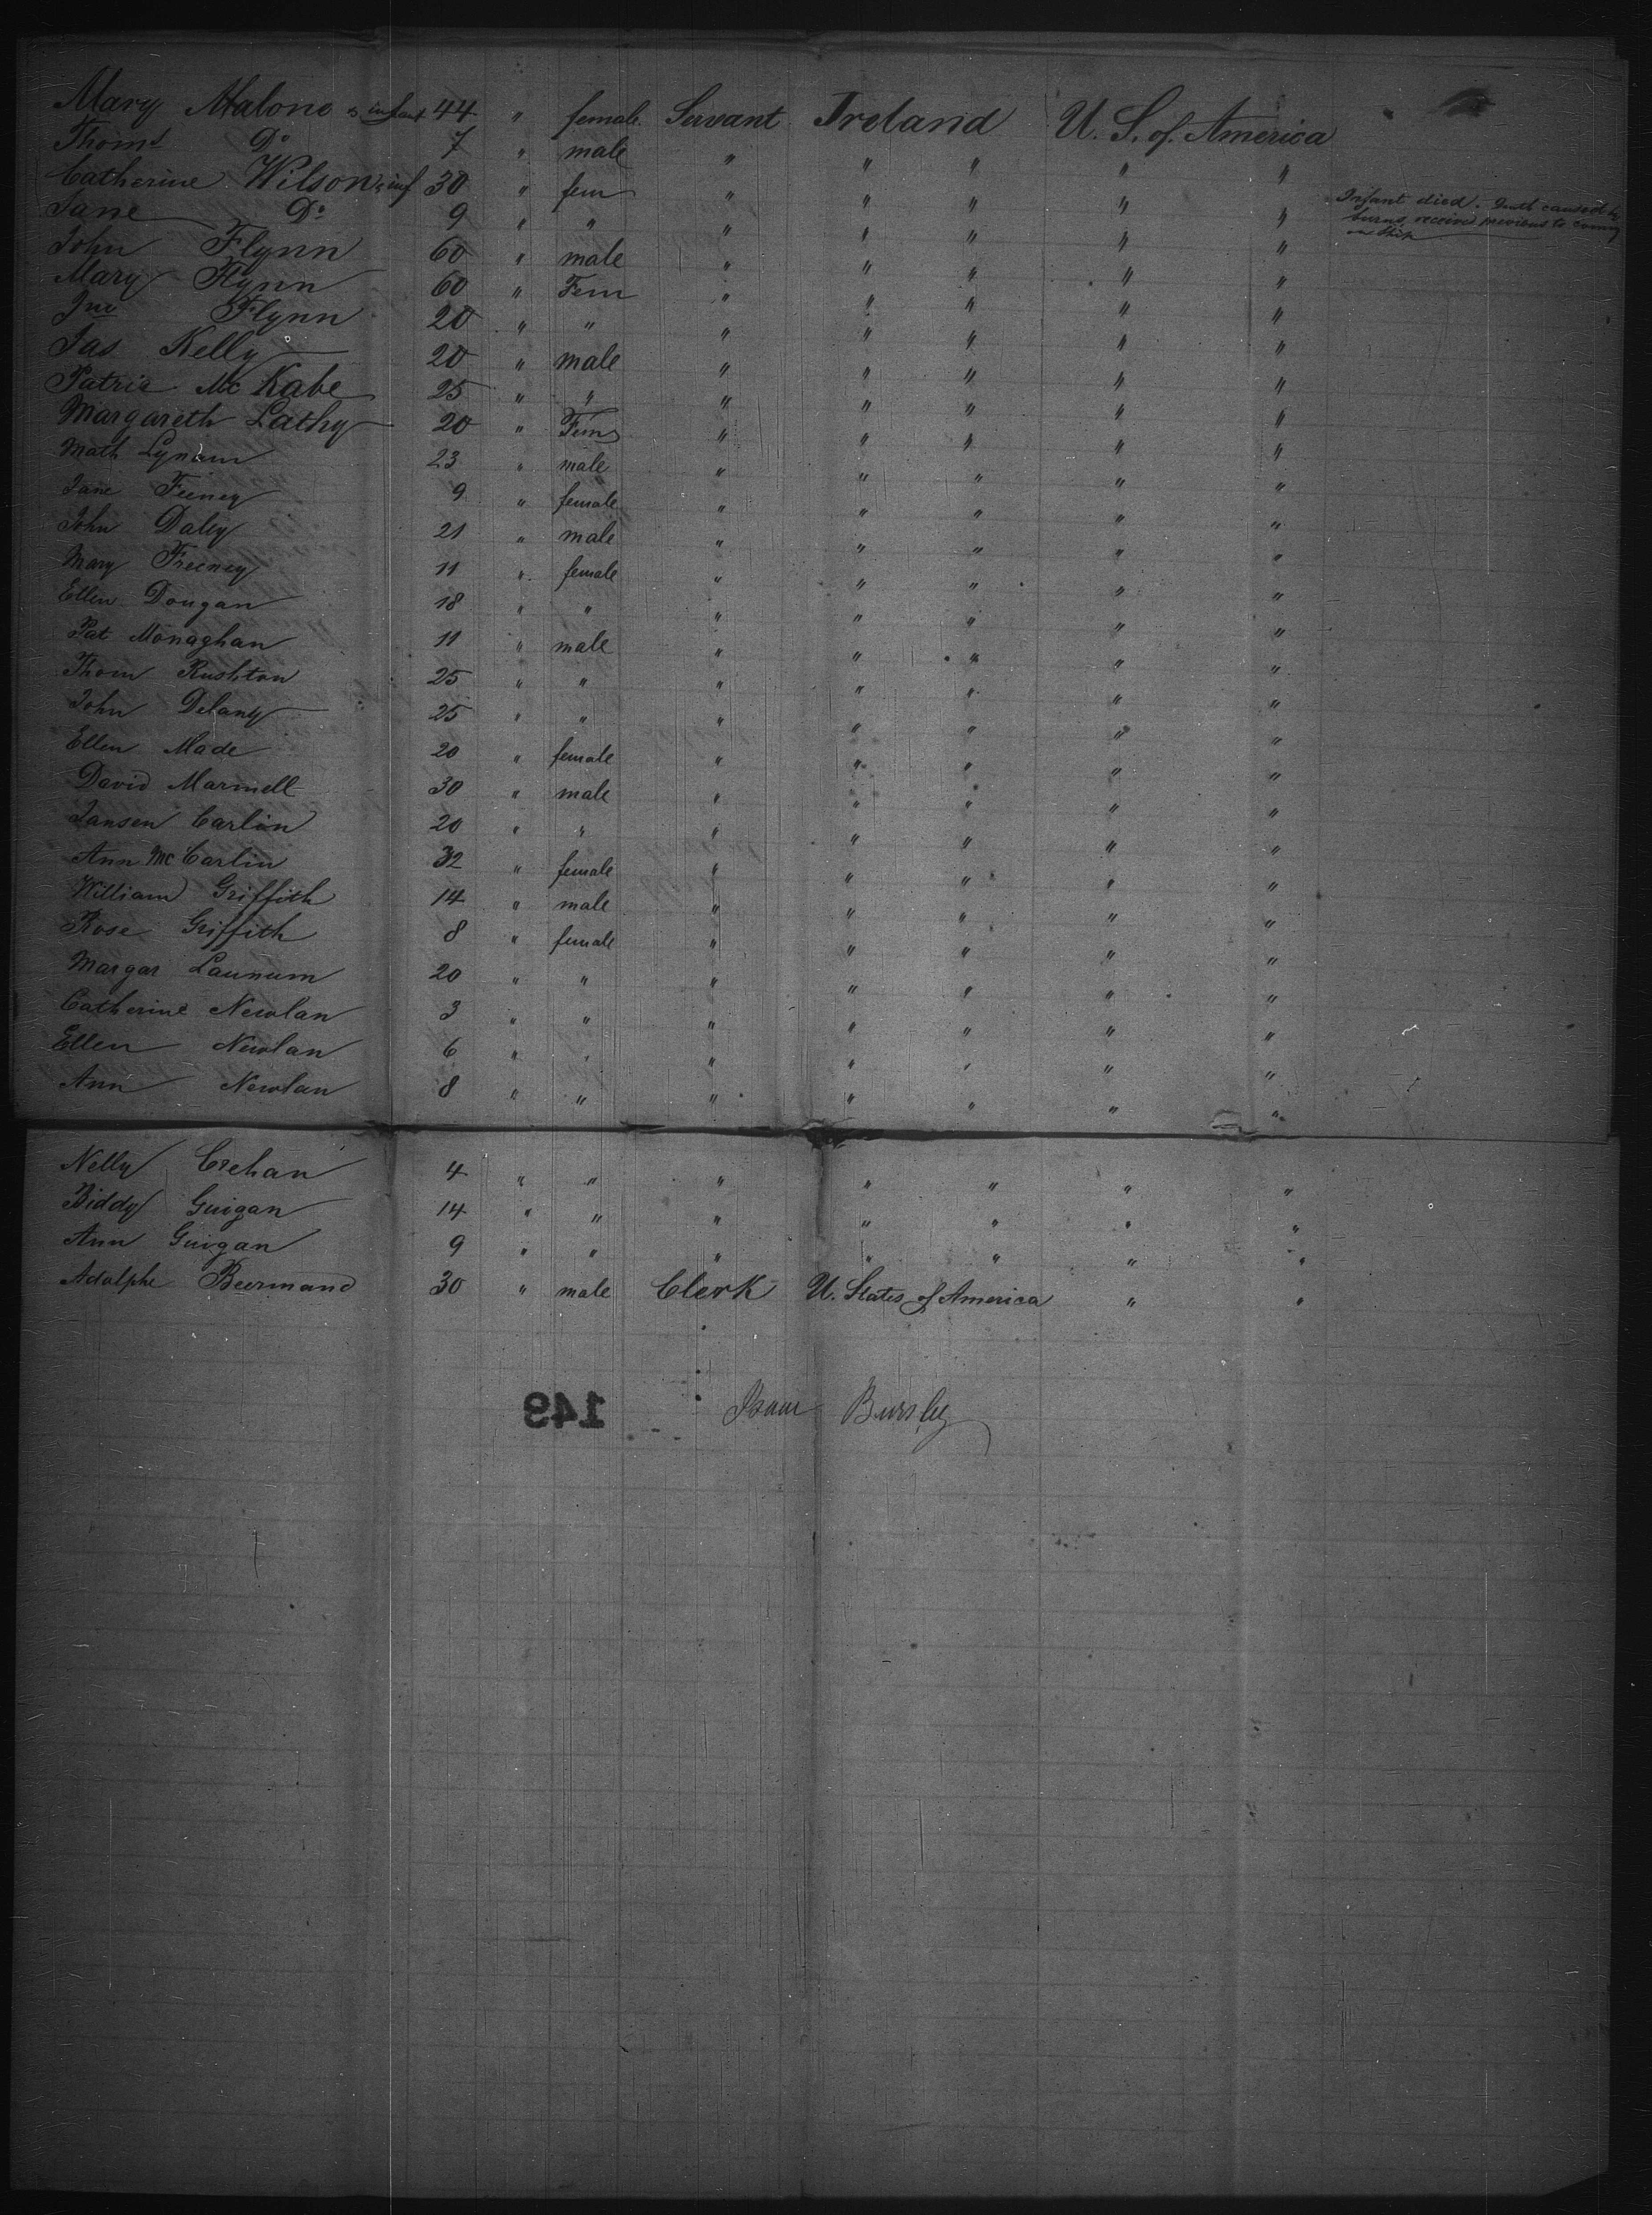 Mary Malone & infant 44 " female Servant Ireland U. S. of America
Thoms Do 7 " male " " " " "
Catherine Wilson & inf 30 " fem " " " " " Infant died. Death caused by
burns received previous to coming
on Ship
Jane Do 9 " " " " " " "
John Flynn 60 " male " " " " "
Mary Flynn 60 " Fem " " " " "
Jno Flynn 20 " " " " " " "
Jas Kelly 20 " male " " " " "
Patric Mc Kabe 25 " " " " " " "
Margareth Lathy 20 " Fem " " " " "
Math Lynam 23 " male " " " " "
Jane Feeney 9 " female " " " " "
John Daley 21 " male " " " " "
Mary Freeney 11 " female " " " " "
Ellen Dougan 18 " " " " " " "
Pat Monaghan 11 " male " " " " "
Thom Rushton 25 " " " " " " "
John Delany 25 " " " " " " "
Ellen Made 20 " female " " " " "
David Marmell 30 " male " " " " "
Jansen Carlin 20 " " " " " " "
Ann Mc Carlin 32 " female " " " " "
William Griffith 14 " male " " " " "
Rose Griffith 8 " female " " " " "
Margar Launum 20 " " " " " " "
Catherine Newlan 3 " " " " " " "
Ellen Newlan 6 " " " " " " "
Ann Newlan 8 " " " " " " "
Nelly Crehan 4 " " " " " " "
Biddy Guigan 14 " " " " " " "
Ann Guigan 9 " " " " " " "
Adolphe Beermand 30 " male Clerk U. States of America " "
149 Isaac Bursley